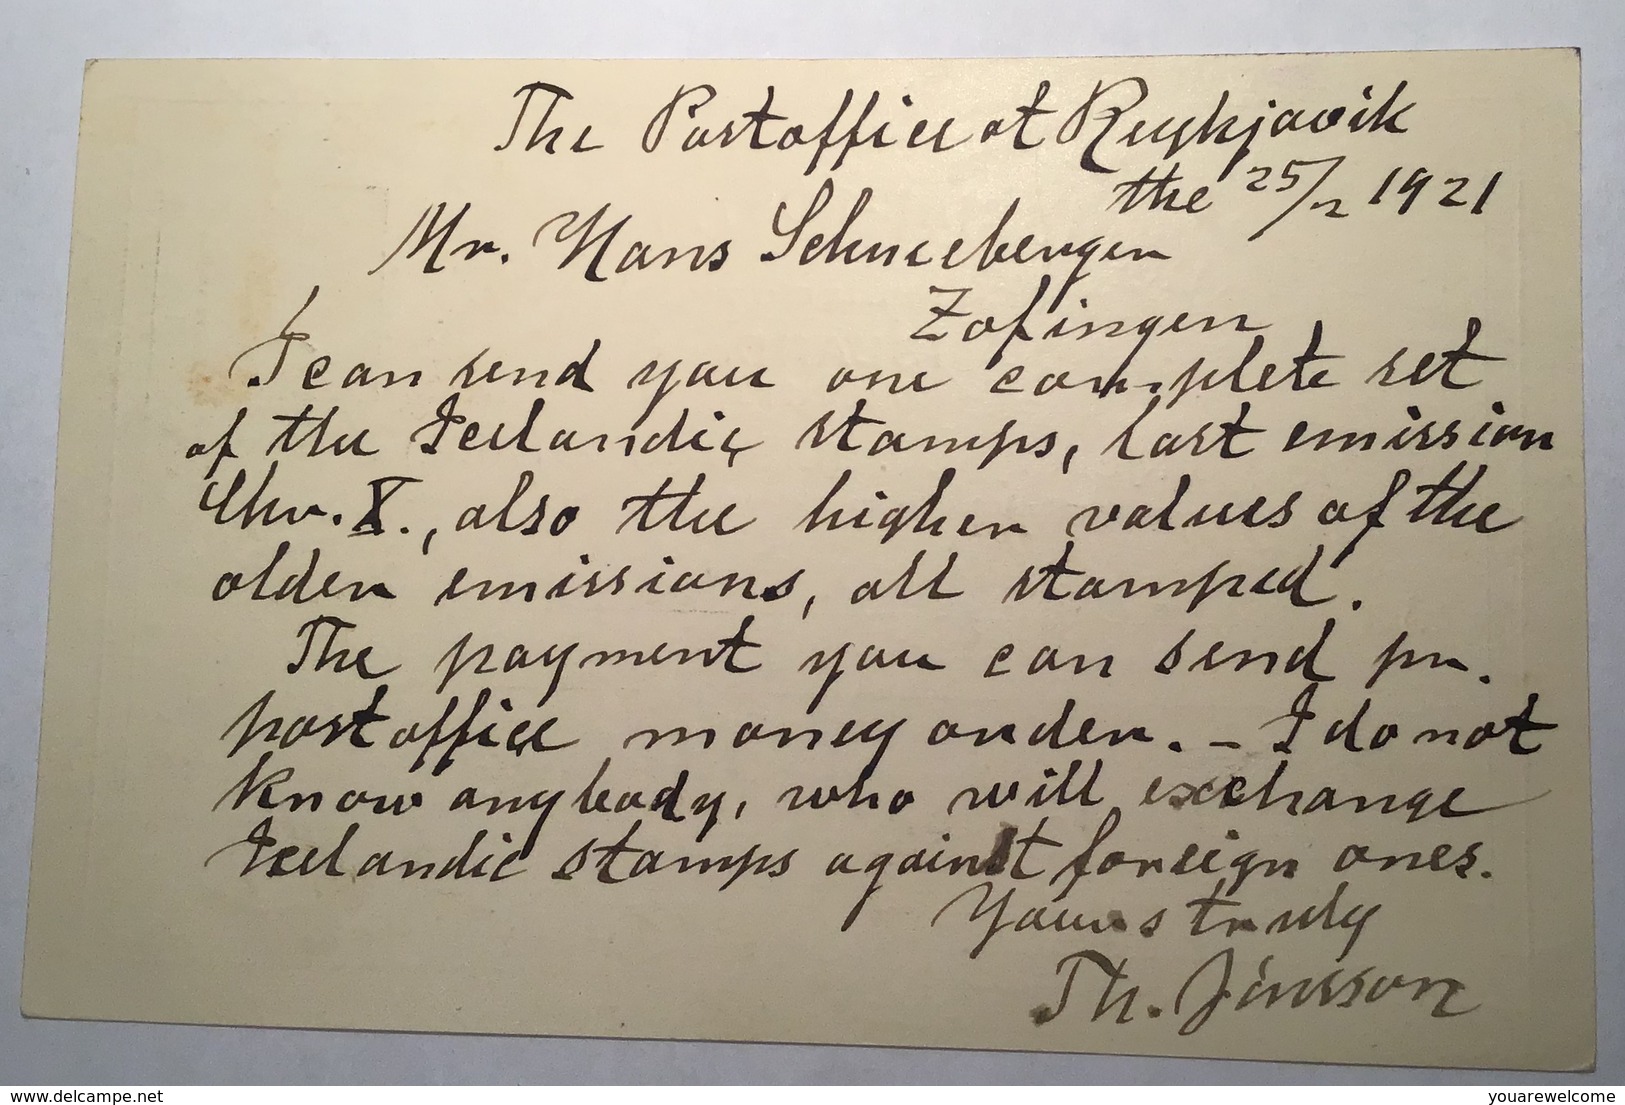 The Postoffice at Reykjavik
the 25/2 1921
Mr. Hans Schneeberger
Zofingen
I can send you one complete set
of the Icelandic stamps, last emission
Chr. X., also the higher values of the
older emissions, all stamped.
The payment you can send pr.
postoffice money order. - I do not
know anybody, who will exchange
Icelandic stamps against foreign ones.
Yours truly
Th. Jónsson
delcampe.net
youarewelcome